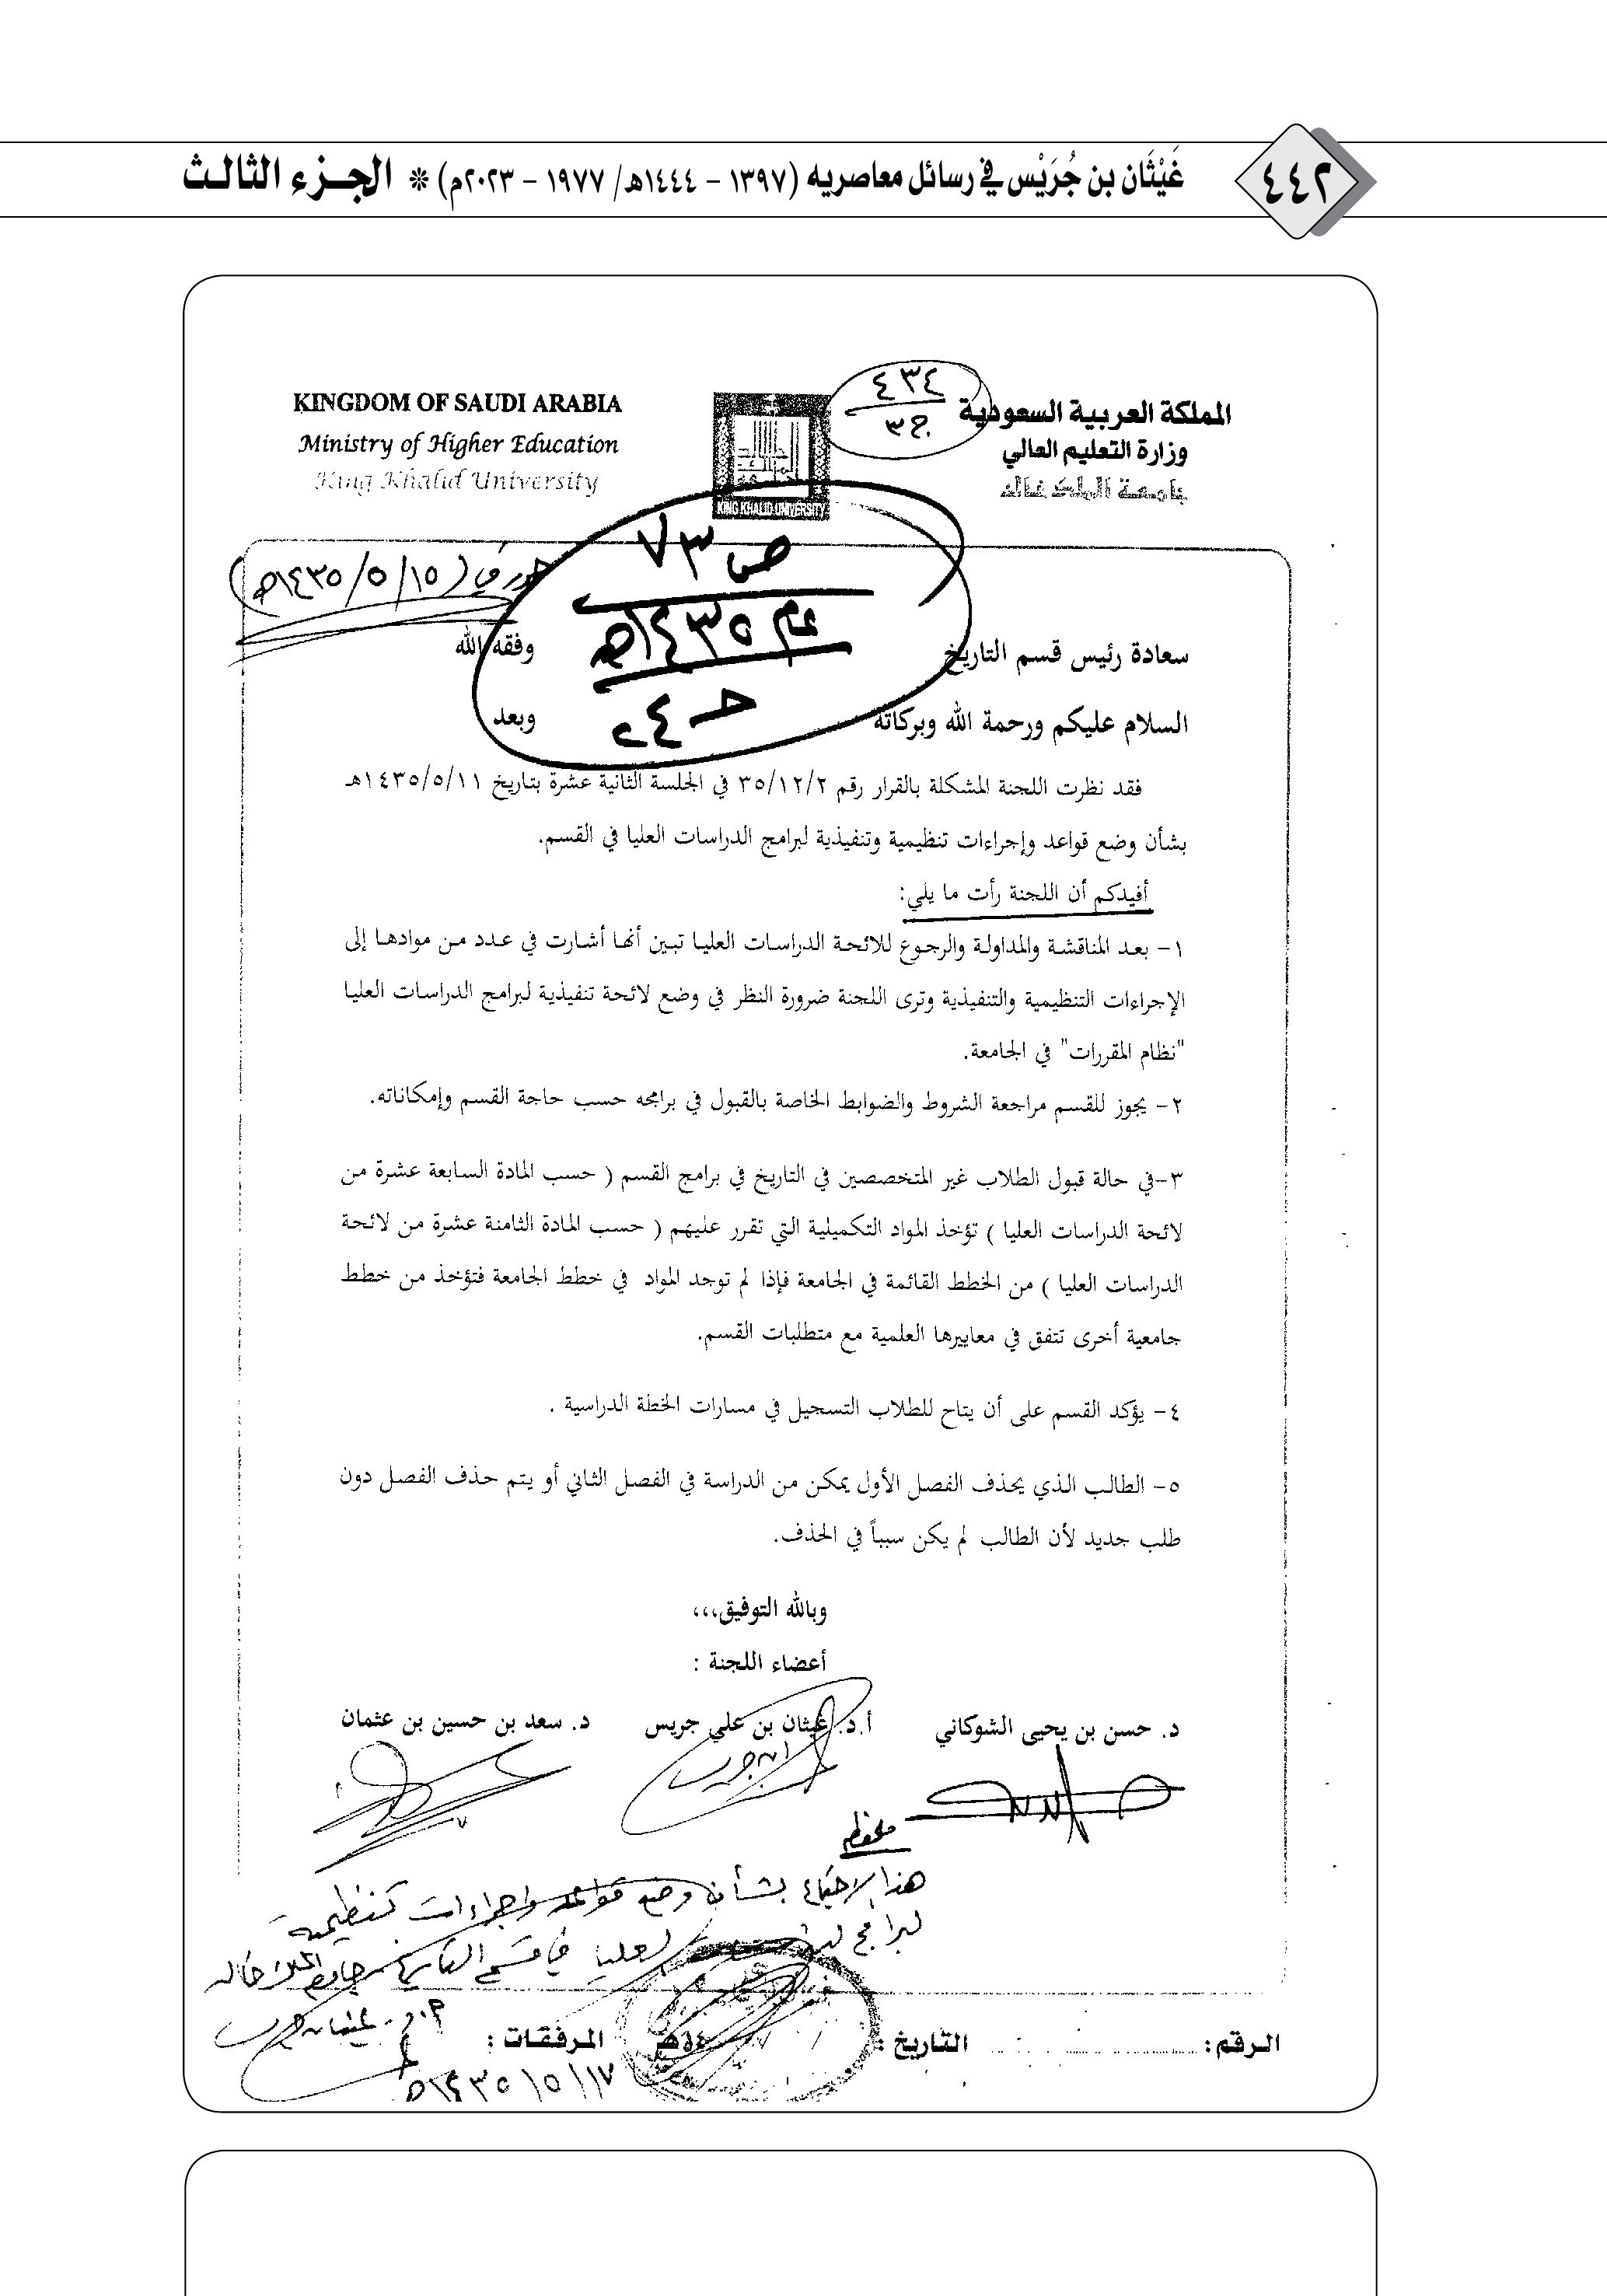 ٤٤٢
غَيْثَان بن جُرَيْس في رسائل معاصريه (١٣٩٧ - ١٤٤٤هـ/ ١٩٧٧ - ٢٠٢٣م) * الجزء الثالث
٤٣٤
ج٣
المملكة العربية السعودية
وزارة التعليم العالي
جامعة الملك خالد
KING KHALID UNIVERSITY
KINGDOM OF SAUDI ARABIA
Ministry of Higher Education
King Khalid University
ص ٧٣
عام ١٤٣٥هـ
(١٥/٥/١٤٣٥هـ)
سعادة رئيس قسم التاريخ وفقه الله
السلام عليكم ورحمة الله وبركاته وبعد
فقد نظرت اللجنة المشكلة بالقرار رقم ٣٥/١٢/٢ في الجلسة الثانية عشرة بتاريخ ١٤٣٥/٥/١١هـ
بشأن وضع قواعد وإجراءات تنظيمية وتنفيذية لبرامج الدراسات العليا في القسم.
أفيدكم أن اللجنة رأت ما يلي:
١- بعد المناقشة والمداولة والرجوع للائحة الدراسات العليا تبين أنها أشارت في عدد من موادها إلى
الإجراءات التنظيمية والتنفيذية وترى اللجنة ضرورة النظر في وضع لائحة تنفيذية لبرامج الدراسات العليا
"نظام المقررات" في الجامعة.
٢- يجوز للقسم مراجعة الشروط والضوابط الخاصة بالقبول في برامجه حسب حاجة القسم وإمكاناته.
٣-في حالة قبول الطلاب غير المتخصصين في التاريخ في برامج القسم ( حسب المادة السابعة عشرة من
لائحة الدراسات العليا ) تؤخذ المواد التكميلية التي تقرر عليهم ( حسب المادة الثامنة عشرة من لائحة
الدراسات العليا ) من الخطط القائمة في الجامعة فإذا لم توجد المواد في خطط الجامعة فتؤخذ من خطط
جامعية أخرى تتفق في معاييرها العلمية مع متطلبات القسم.
٤- يؤكد القسم على أن يتاح للطلاب التسجيل في مسارات الخطة الدراسية .
٥- الطالب الذي يحذف الفصل الأول يمكن من الدراسة في الفصل الثاني أو يتم حذف الفصل دون
طلب جديد لأن الطالب لم يكن سبباً في الحذف.
وبالله التوفيق،،،
أعضاء اللجنة :
د. حسن بن يحيى الشوكاني أ.د. غيثان بن علي جريس د. سعد بن حسين بن عثمان
هذا الاجتماع بشأن وضع قواعد وإجراءات تنظيمية
لبرامج العليا في قسم التاريخ جامعة الملك خالد
أ.د. غيثان جريس
١٤٣٥/٥/١٧هـ
الرقم: التاريخ : / / ١٤هـ المرفقات :